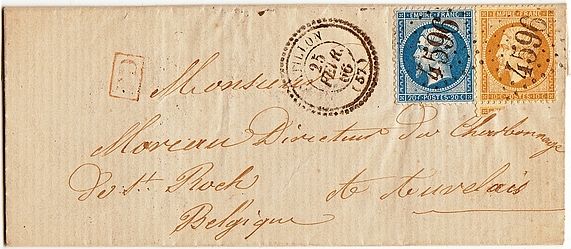 EMPIRE FRANC
EMPIRE FRANC
4596
4596
20 C POSTES 20 C
25
FEVR.
66
(57)
PD
Monsieur
Moreau Directeur du Charbonnage
de St Roch à Auvelais
Belgique